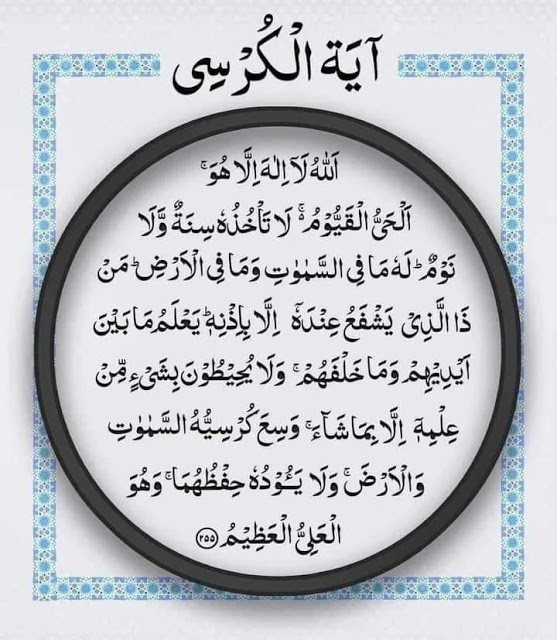 آيَة الْكُرْسِى
اَللّٰهُ لَاۤ اِلٰهَ اِلَّا هُوَ ۚ
اَلْحَىُّ الْقَيُّوْمُ ۬ۚ لَا تَاْخُذُهٗ سِنَةٌ وَّلَا
نَوْمٌ ؕ لَهٗ مَا فِى السَّمٰوٰتِ وَمَا فِى الْاَرْضِ ؕ مَنْ
ذَا الَّذِىْ يَشْفَعُ عِنْدَهٗۤ اِلَّا بِاِذْنِهٖ ؕ يَعْلَمُ مَا بَيْنَ
اَيْدِيْهِمْ وَمَا خَلْفَهُمْ ۚ وَلَا يُحِيْطُوْنَ بِشَىْءٍ مِّنْ
عِلْمِهٖۤ اِلَّا بِمَا شَآءَ ۚ وَسِعَ كُرْسِيُّهُ السَّمٰوٰتِ
وَالْاَرْضَ ۚ وَلَا يَـُٔوْدُهٗ حِفْظُهُمَا ۚ وَهُوَ
الْعَلِىُّ الْعَظِيْمُ ﴿۲۵۵﴾